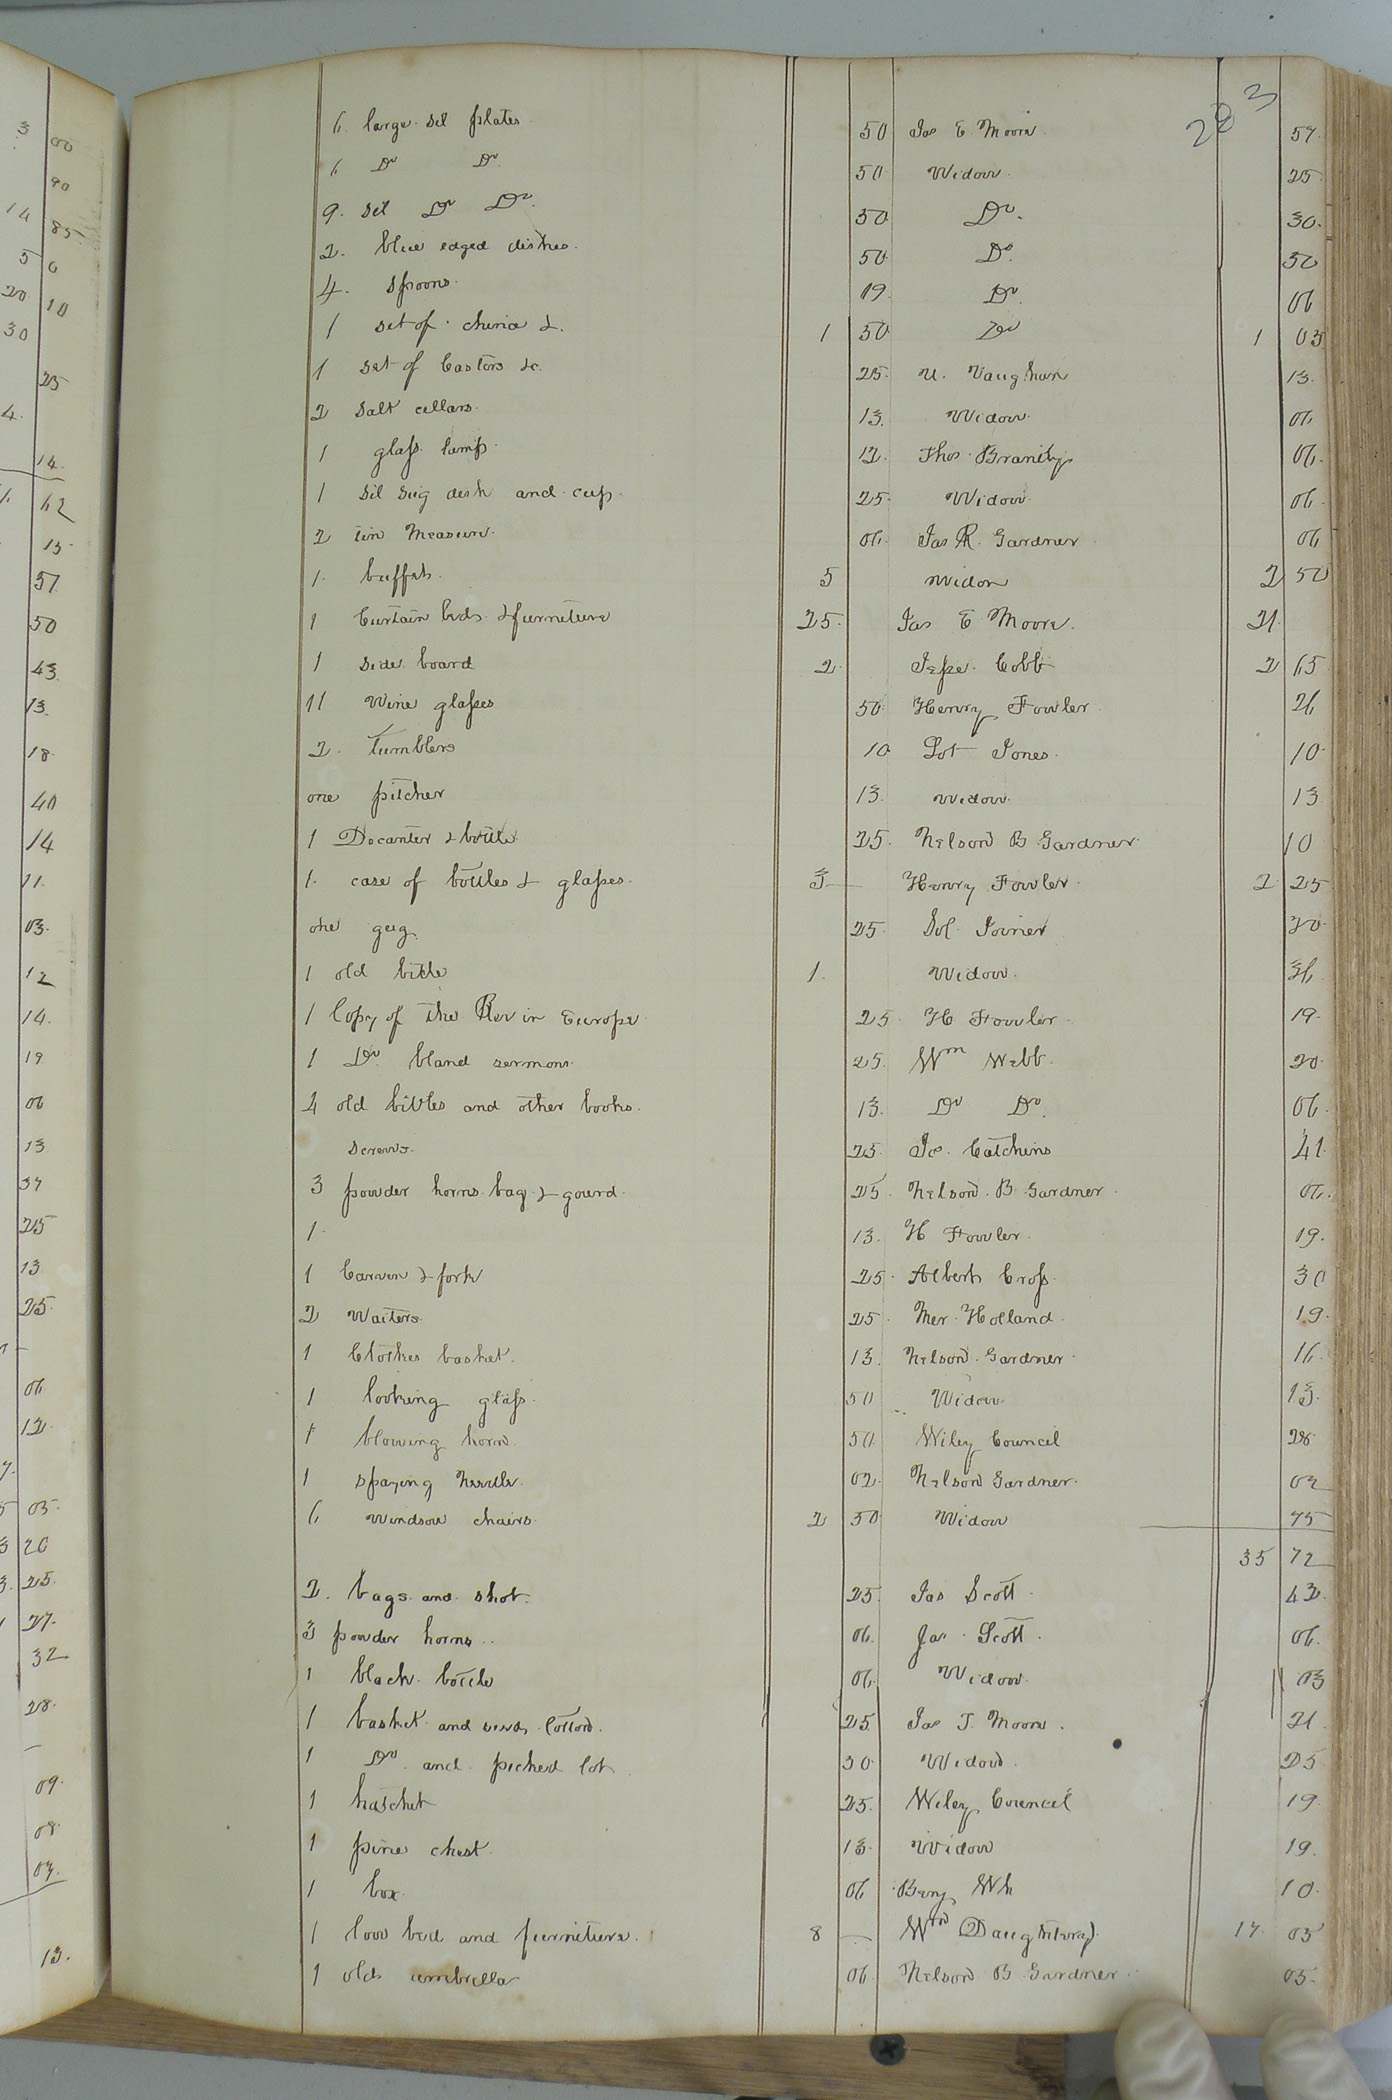 283
6. large Sil plates. 50 Jas E Moore. 57
6 Do Do. 50 Widow. 25
9. Sil Do Do. 50 Do. 30.
2. blue edged dishes. 50 Do. 50
4. Spoons. 19. Do. 06
1 set of china &. 1 50 Do 1 03
1 set of Castors &c. 25. U. Vaughan 13.
2 Salt cellars. 13. Widow. 06
1 glass lamp. 12. Thos. Brantly 06.
1 Sil Sug dish and cup. 25. Widow. 06.
2 tin Measure. 06. Jas R. Gardner 06
1. buffet. 5 Widow 2 50
1 Curtain beds. & furniture 25. Jas E Moore. 21.
1 side board 2. Jesse Cobb 2 65
11 Wine glasses 50 Henry Fowler 26
2. tumblers 10 Lot Jones. 10.
one pitcher 13. Widow. 13
1 Decanter & bottle 25. Nelson B Gardner. 10
1. case of bottles & glasses. 3 — Henry Fowler. 2 25
one gug. 25. Sol. Joiner 20
1 old bible 1. Widow. 36
1 Copy of the Rev in Europe. 25 H Fowler. 19.
1 Do. bland sermons. 25. Wm Webb. 20
4 old bibles and other books. 13. Do Do. 06.
screws. 25. Catchins 41
3 powder horns bag & gourd. 25. Nelson. B. Gardner. 06.
1. 13. H Fowler. 19.
1 Carven & fork 25. Albert Cross. 30
2 Waiters. 25. Mer. Holland. 19.
1 Clothes basket. 13. Nelson. Gardner. 16.
1 looking glass. 50 Widow. 13.
1 blowing horn. 50. Wiley Council 28
1 spaying Needle. 02. Nelson Gardner. 02
6 Windsor chairs. 2 50 Widow 75
35 72
2. bags and shot. 25. Jas Scott. 42.
3 powder horns.. 06. Jas. Scott. 06.
1 black bottle 06. Widow. 03
1 basket and seed Cotton. 25. Jas T. Moore. 21.
1 Do. and picked Cot. 30. Widow. 25
1 hatchet 25. Wiley Council 19.
1 pine chest. 13. Widow 19.
1 box. 06 10.
1 low bed and furniture. 8 — Wm Daughtery. 17. 05
1 old umbrella 06. Nelson B Gardner. 05.